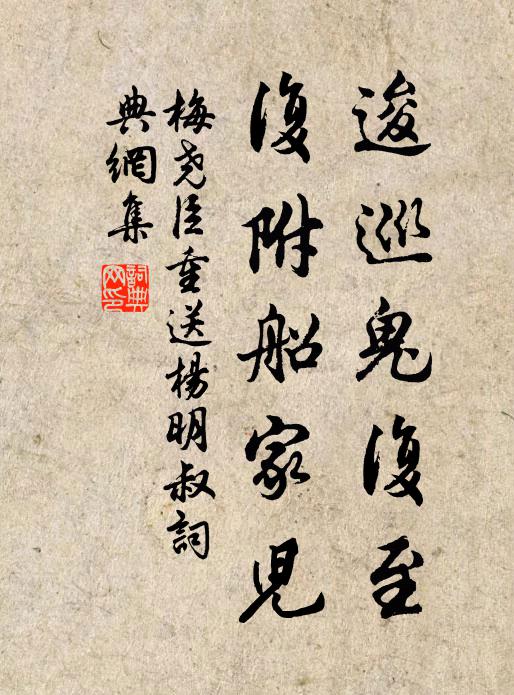 逡巡鬼復至
復附船家兒
梅堯臣重送楊明叔詞
典網集
詞典網印